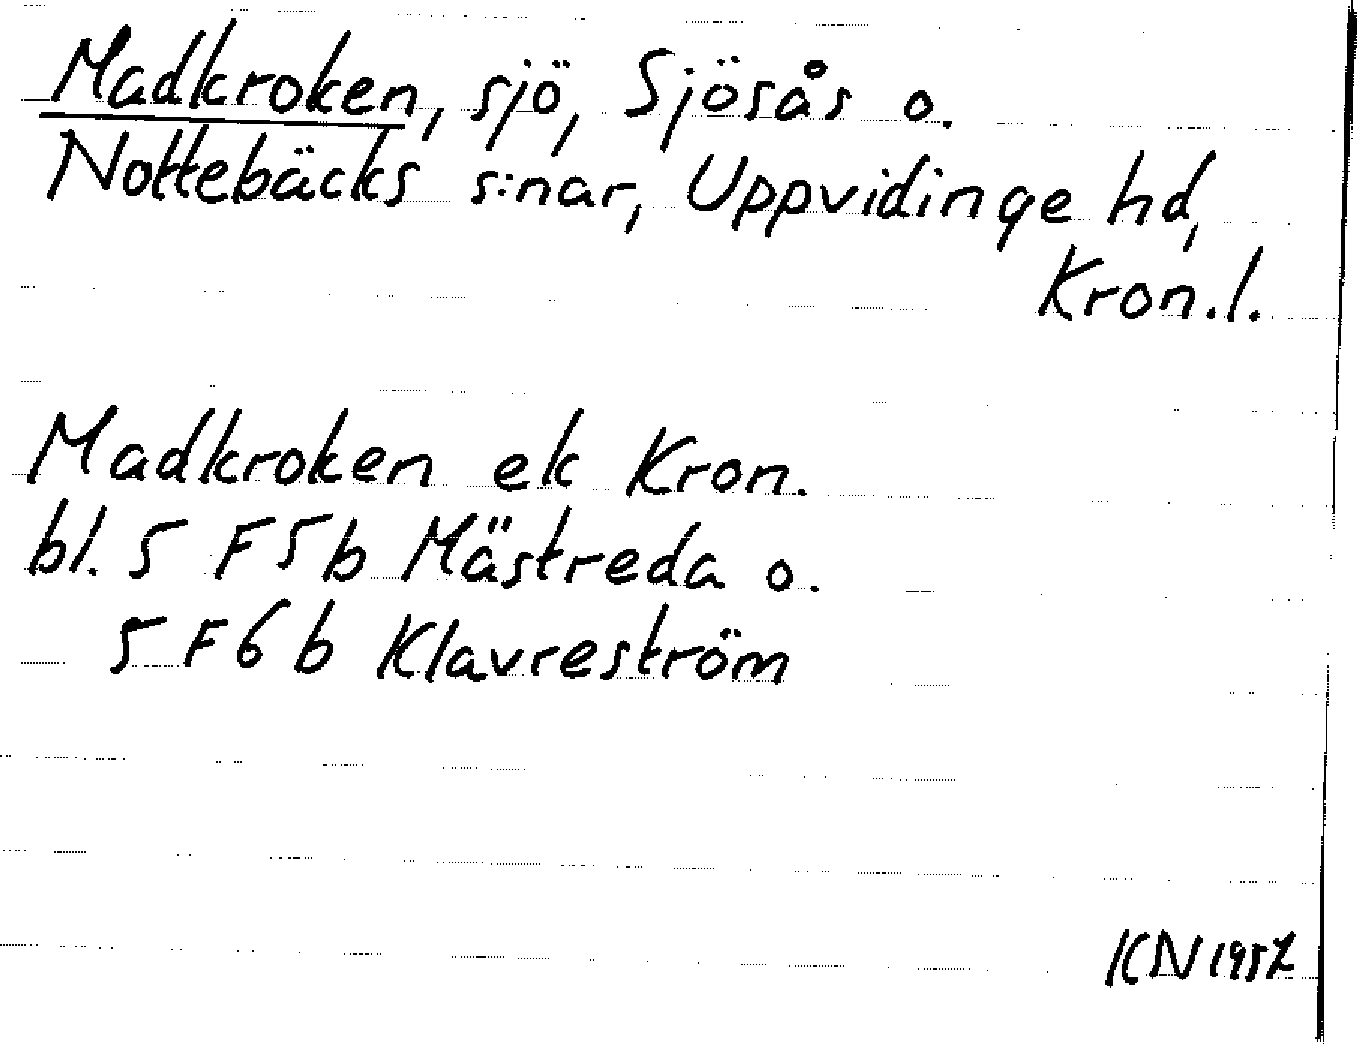 Madkroken, sjö, Sjösås o.
Nottebäcks s:nar, Uppvidinge hd,
Kron.l.
Madkroken ek Kron.
bl. 5 F5b Mästreda o.
5 F6b Klavreström